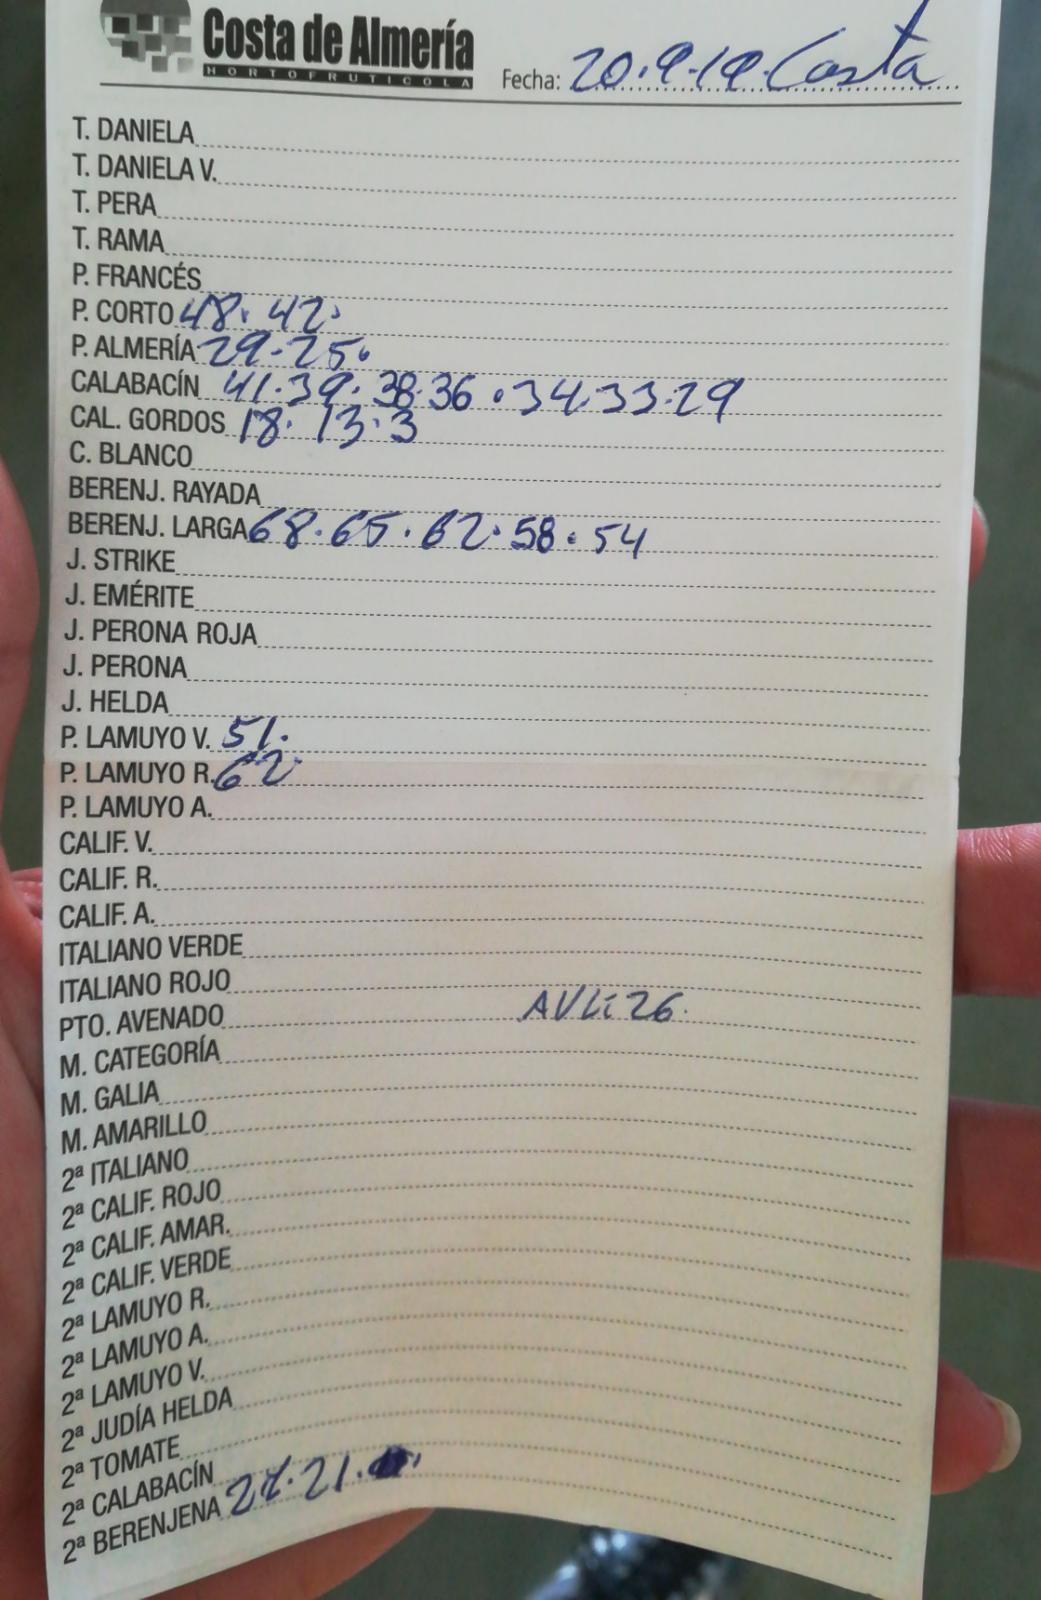 Costa de Almería
HORTOFRUTICOLA
Fecha: 20.9.19. Costa
T. DANIELA
T. DANIELA V.
T. PERA
T. RAMA
P. FRANCÉS
P. CORTO 48. 42.
P. ALMERÍA 29.25.
CALABACÍN 41.39.38.36.34.33.29
CAL. GORDOS 18. 13.3
C. BLANCO
BERENJ. RAYADA
BERENJ. LARGA 68.65.62.58.54
J. STRIKE
J. EMÉRITE
J. PERONA ROJA
J. PERONA
J. HELDA
P. LAMUYO V. 51.
P. LAMUYO R. 62
P. LAMUYO A.
CALIF. V.
CALIF. R.
CALIF. A.
ITALIANO VERDE
ITALIANO ROJO
PTO. AVENADO 26.
M. CATEGORÍA
M. GALIA
M. AMARILLO
2ª ITALIANO
2ª CALIF. ROJO
2ª CALIF. AMAR.
2ª CALIF. VERDE
2ª LAMUYO R.
2ª LAMUYO A.
2ª LAMUYO V.
2ª JUDÍA HELDA
2ª TOMATE
2ª CALABACÍN
2ª BERENJENA 21.